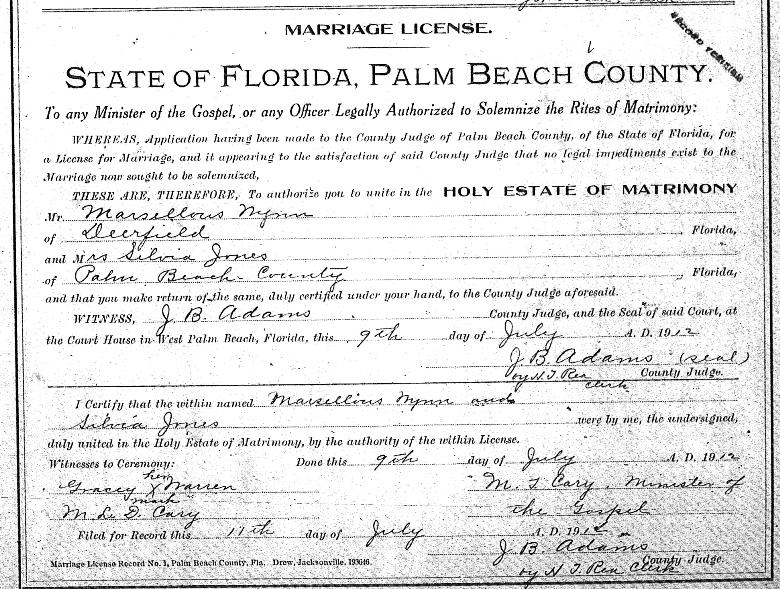 MARRIAGE LICENSE.
STATE OF FLORIDA, PALM BEACH COUNTY.
To any Minister of the Gospel, or any Officer Legally Authorized to Solemnize the Rites of Matrimony:
WHEREAS, Application having been made to the County Judge of Palm Beach County, of the State of Florida, for
a License for Marriage, and it appearing to the satisfaction of said County Judge that no legal impediments exist to the
Marriage now sought to be solemnized,
THESE ARE, THEREFORE, To authorize you to unite in the HOLY ESTATE OF MATRIMONY
Mr. Marsellous Wynn
of Deerfield Florida,
and Mrs Silvia Jones
of Palm Beach County Florida,
and that you make return of the same, duly certified under your hand, to the County Judge aforesaid.
WITNESS, J B. Adams County Judge, and the Seal of said Court, at
the Court House in West Palm Beach, Florida, this 9th day of July A. D. 1912
J B. Adams (seal)
by N. T. Rea County Judge.
clerk
I Certify that the within named Marsellous Wynn and
Silvia Jones were by me, the undersigned,
duly united in the Holy Estate of Matrimony, by the authority of the within License.
Witnesses to Ceremony: Done this 9th day of July A. D. 1912
her
Gracey X Warren M. T. Cary, Minister of
mark
M. L. D. Cary the Gospel
Filed for Record this 11th day of July A. D. 1912
J B. Adams
County Judge.
Marriage License Record No. 1, Palm Beach County, Fla. Drew, Jacksonville. 193646.
by N. T. Rea Clerk